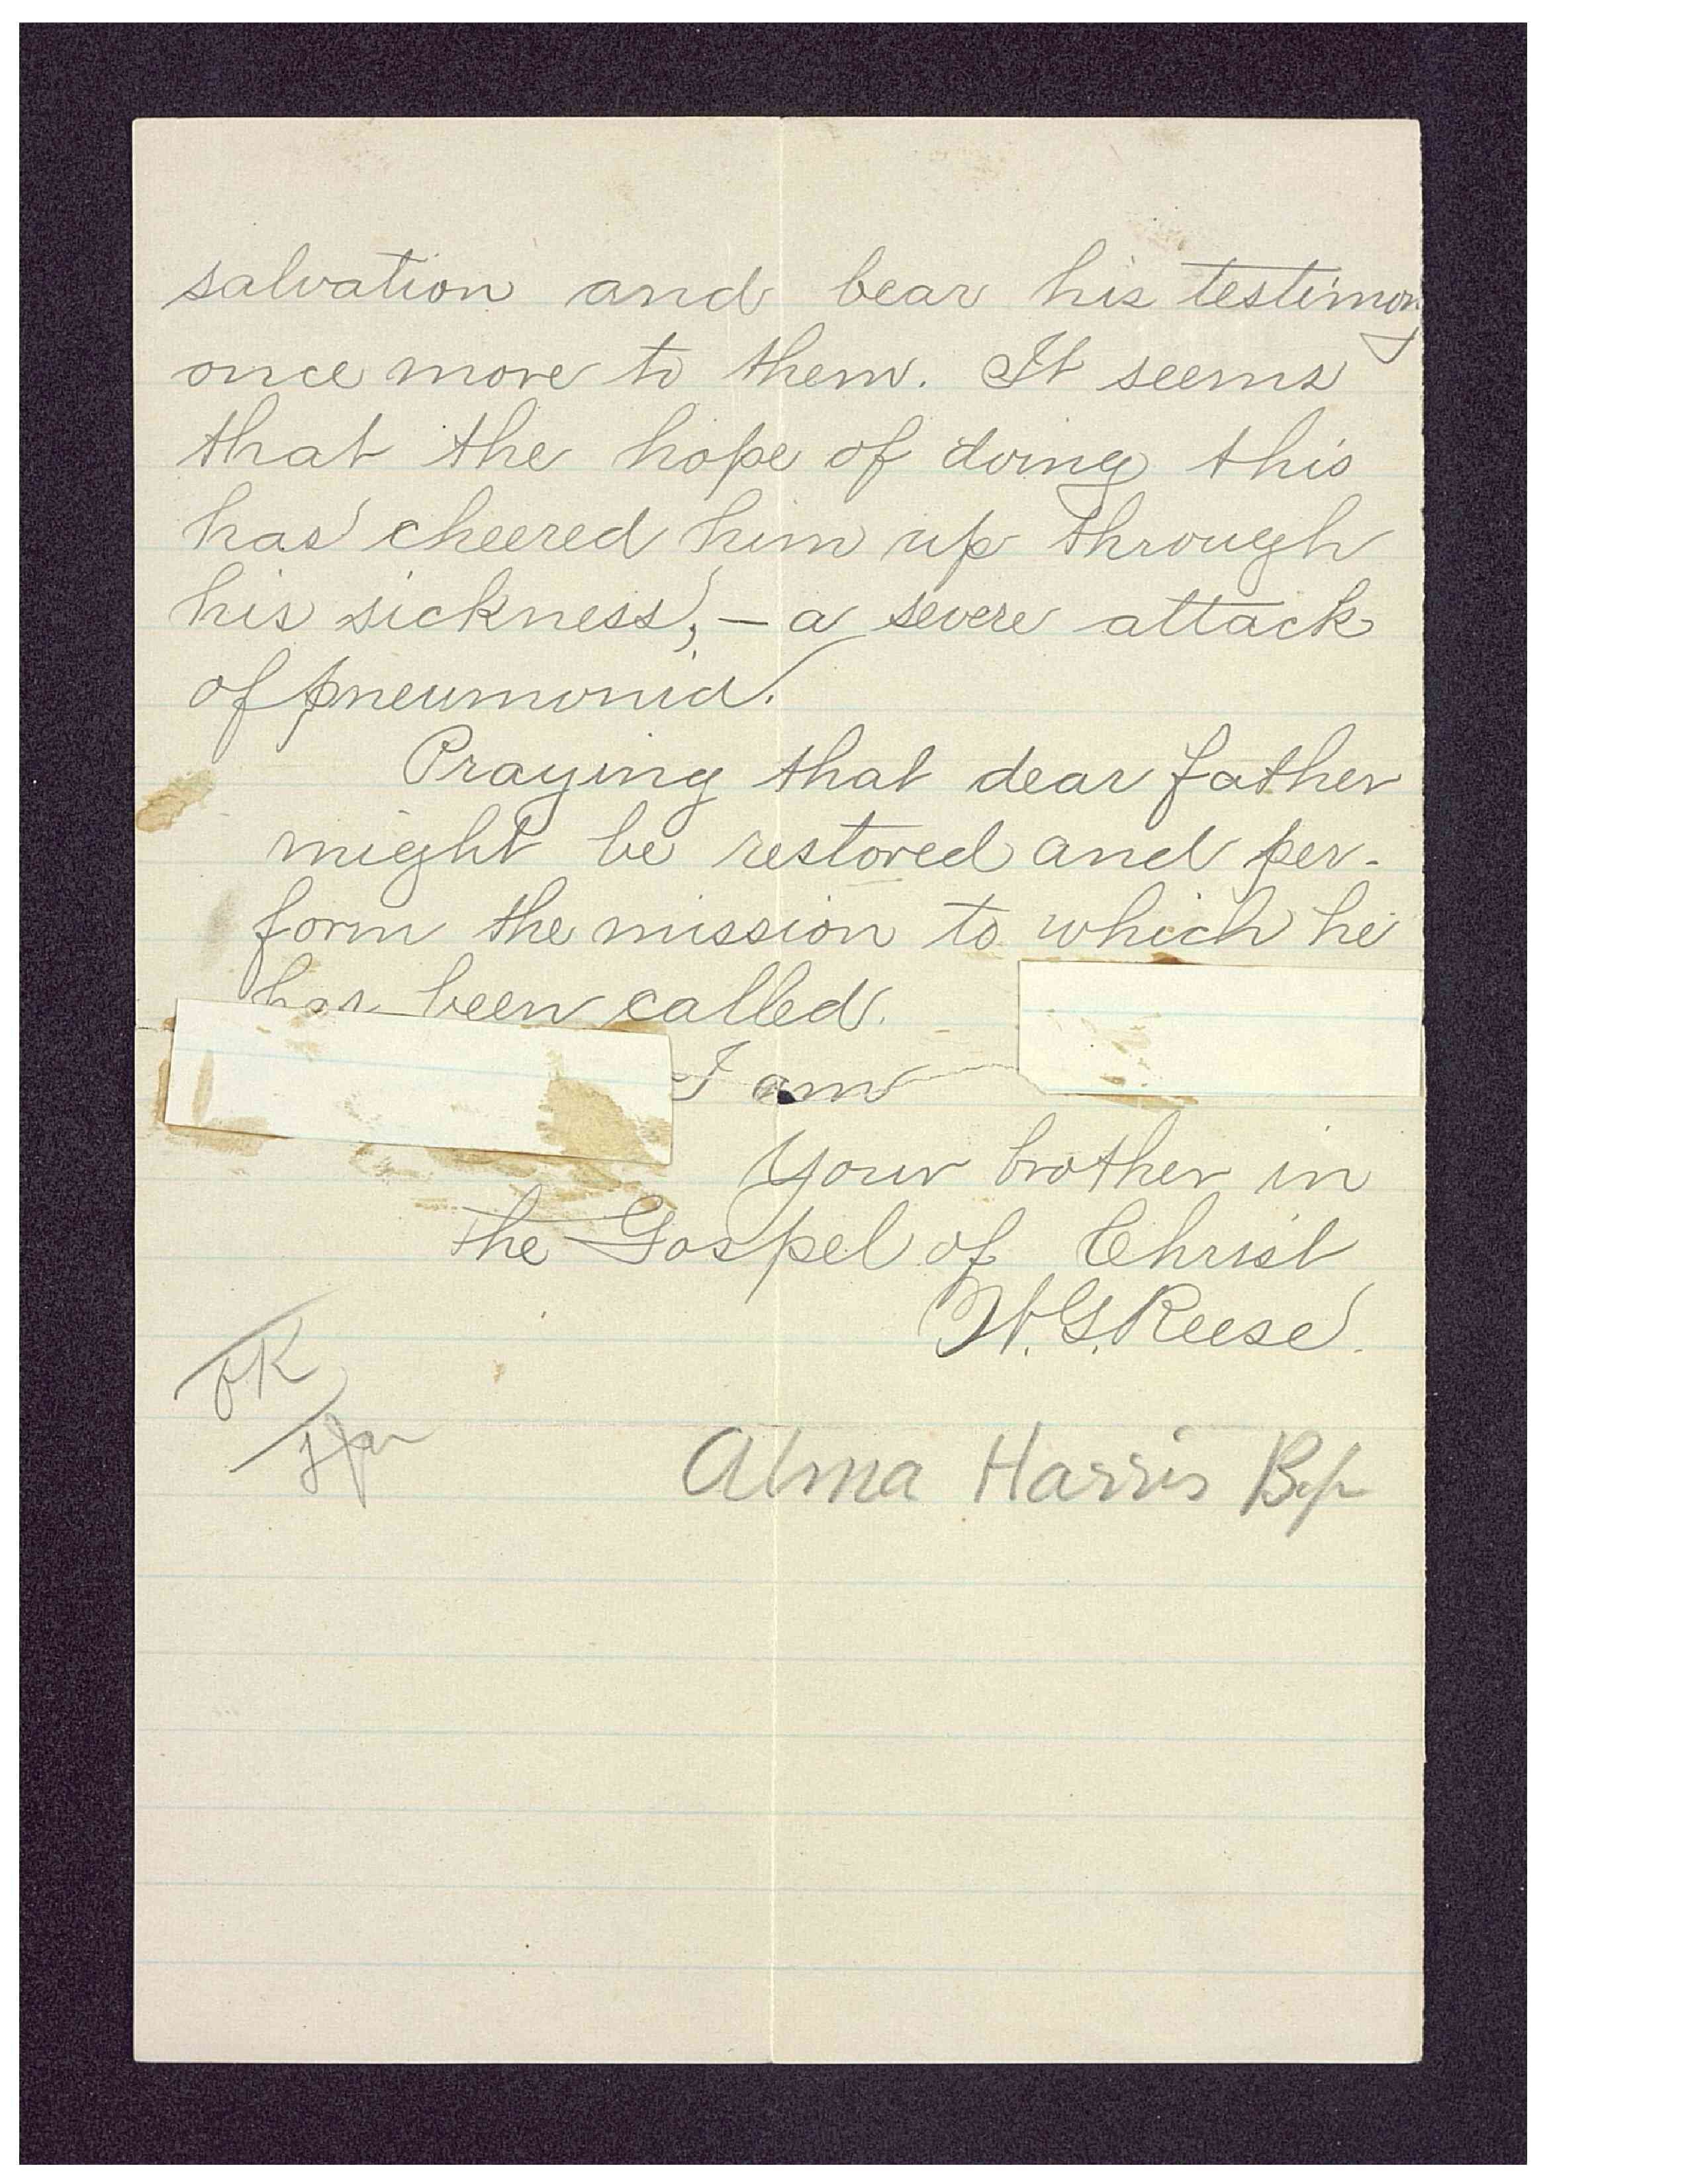 salvation and bear his testimony
once more to them. It seems
that the hope of doing this
has cheered him up through
his sickness, – a severe attack
of pneumonia.
Praying that dear father
might be restored and per-
form the mission to which he
has been called.
I am
Your brother in
the Gospel of Christ
W. G. Reese.
OK
Alma Harris Bp